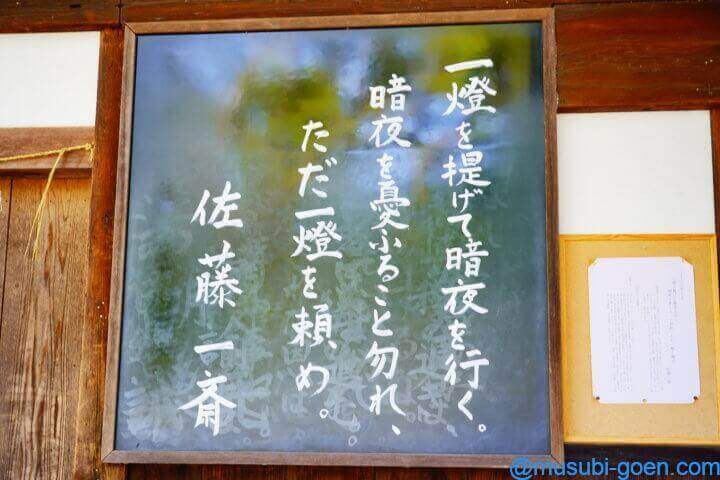 一燈を提げて暗夜を行く。
暗夜を憂ふること勿れ、
ただ一燈を頼め。
佐藤一斎
@musubi-goen.com